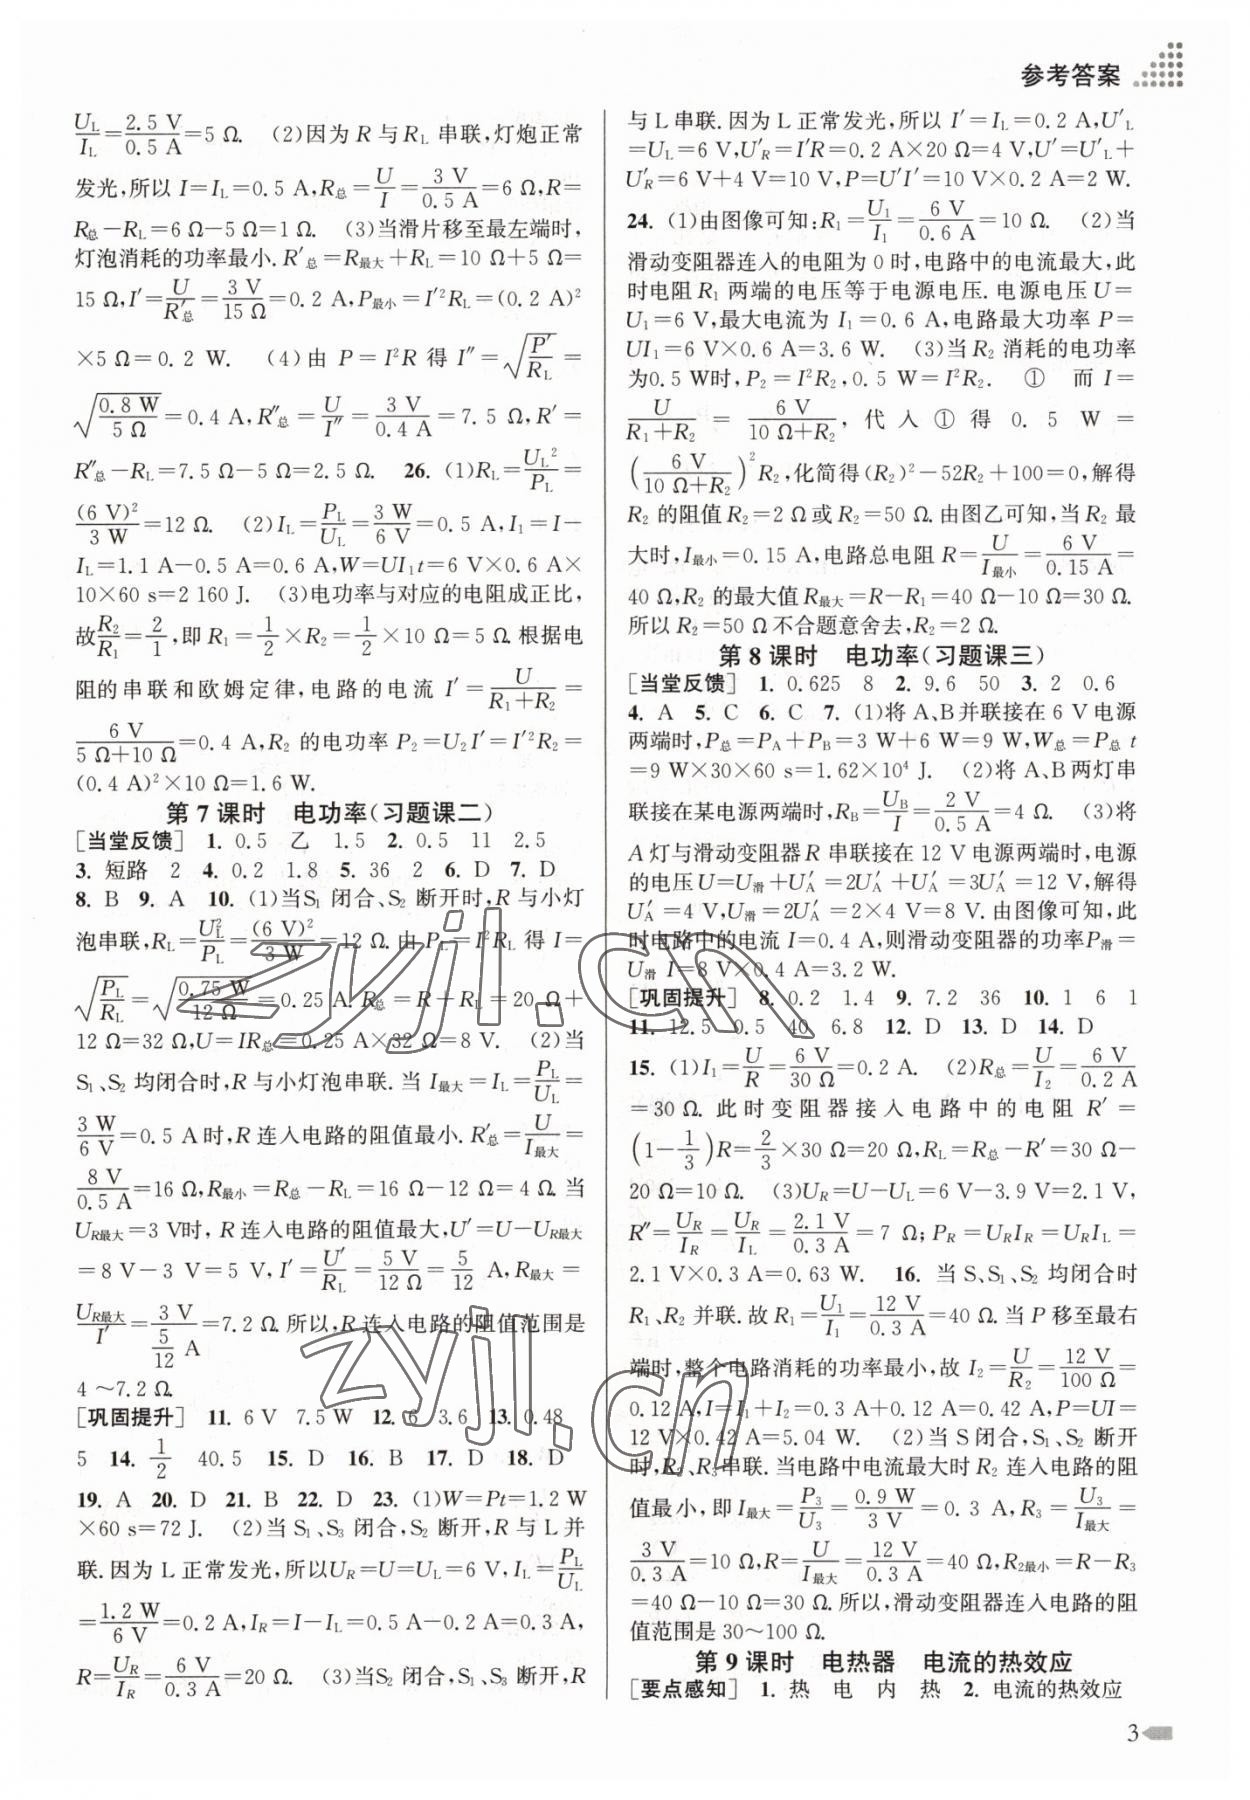 参考答案
U_L/I_L=2.5 V/0.5 A=5 Ω. (2)因为 R 与R_L 串联,灯炮正常
发光,所以 I=I_L=0.5 A,R_总=U/I=3 V/0.5 A=6 Ω,R=
R_总-R_L=6 Ω-5 Ω=1 Ω. (3)当滑片移至最左端时,
灯泡消耗的功率最小.R′_总=R_最大+R_L=10 Ω+5 Ω=
15 Ω,I′=U/R′_总=3 V/15 Ω=0.2 A,P_最小=I′²R_L=(0.2 A)²
×5 Ω=0.2 W. (4)由 P=I²R 得 I″=√(P′/R_L)=
√(0.8 W/5 Ω)=0.4 A,R″_总=U/I″=3 V/0.4 A=7.5 Ω,R′=
R″_总-R_L=7.5 Ω-5 Ω=2.5 Ω. 26. (1)R_L=U_L²/P_L=
(6 V)²/3 W=12 Ω. (2)I_L=P_L/U_L=3 W/6 V=0.5 A,I₁=I-
I_L=1.1 A-0.5 A=0.6 A,W=UI₁t=6 V×0.6 A×
10×60 s=2 160 J. (3)电功率与对应的电阻成正比,
故R₂/R₁=2/1,即 R₁=1/2×R₂=1/2×10 Ω=5 Ω.根据电
阻的串联和欧姆定律,电路的电流 I′=U/(R₁+R₂)=
6 V/(5 Ω+10 Ω)=0.4 A,R₂ 的电功率 P₂=U₂I′=I′²R₂=
(0.4 A)²×10 Ω=1.6 W.
第 7 课时 电功率(习题课二)
[当堂反馈] 1. 0.5 乙 1.5 2. 0.5 11 2.5
3. 短路 2 4. 0.2 1.8 5. 36 2 6. D 7. D
8. B 9. A 10. (1)当S₁ 闭合、S₂ 断开时,R 与小灯
泡串联,R_L=U_L²/P_L=(6 V)²/3 W=12 Ω.由 P_L=I²R_L 得 I=
√(P_L/R_L)=√(0.75 W/12 Ω)=0.25 A.R_总=R+R_L=20 Ω+
12 Ω=32 Ω,U=IR_总=0.25 A×32 Ω=8 V. (2)当
S₁、S₂ 均闭合时,R 与小灯泡串联. 当 I_最大=I_L=P_L/U_L=
3 W/6 V=0.5 A时,R 连入电路的阻值最小.R′_总=U/I_最大=
8 V/0.5 A=16 Ω,R_最小=R_总-R_L=16 Ω-12 Ω=4 Ω.当
U_R最大=3 V时,R 连入电路的阻值最大,U′=U-U_R最大
=8 V-3 V=5 V,I′=U′/R_L=5 V/12 Ω=5/12 A,R_最大=
U_R最大/I′=3 V/(5/12 A)=7.2 Ω.所以,R连入电路的阻值范围是
4 ~7.2 Ω.
[巩固提升] 11. 6 V 7.5 W 12. 6 3.6 13. 0.48
5 14. 1/2 40.5 15. D 16. B 17. D 18. D
19. A 20. D 21. B 22. D 23. (1)W=Pt=1.2 W
×60 s=72 J. (2)当 S₁、S₃ 闭合,S₂ 断开,R 与 L 并
联.因为 L 正常发光,所以U_R=U=U_L=6 V,I_L=P_L/U_L
=1.2 W/6 V=0.2 A,I_R=I-I_L=0.5 A-0.2 A=0.3 A,
R=U_R/I_R=6 V/0.3 A=20 Ω. (3)当S₂ 闭合,S₁、S₃ 断开,R
与 L 串联.因为 L 正常发光,所以 I′=I_L=0.2 A,U′_L
=U_L=6 V,U′_R=I′R=0.2 A×20 Ω=4 V,U′=U′_L+
U′_R=6 V+4 V=10 V,P=U′I′=10 V×0.2 A=2 W.
24. (1)由图像可知:R₁=U₁/I₁=6 V/0.6 A=10 Ω. (2)当
滑动变阻器连入的电阻为 0 时,电路中的电流最大,此
时电阻 R₁ 两端的电压等于电源电压. 电源电压 U=
U₁=6 V,最大电流为 I₁=0.6 A,电路最大功率 P=
UI₁=6 V×0.6 A=3.6 W. (3)当 R₂ 消耗的电功率
为0.5 W时,P₂=I²R₂,0.5 W=I²R₂. ① 而 I=
U/(R₁+R₂)=6 V/(10 Ω+R₂),代入①得 0.5 W=
(6 V/(10 Ω+R₂))²R₂,化简得(R₂)²-52R₂+100=0,解得
R₂ 的阻值 R₂=2 Ω或R₂=50 Ω.由图乙可知,当 R₂ 最
大时,I_最小=0.15 A,电路总电阻 R=U/I_最小=6 V/0.15 A=
40 Ω,R₂ 的最大值 R_最大=R-R₁=40 Ω-10 Ω=30 Ω.
所以 R₂=50 Ω不合题意舍去,R₂=2 Ω.
第 8 课时 电功率(习题课三)
[当堂反馈] 1. 0.625 8 2. 9.6 50 3. 2 0.6
4. A 5. C 6. C 7. (1)将 A、B并联接在 6 V电源
两端时,P_总=P_A+P_B=3 W+6 W=9 W,W_总=P_总 t
=9 W×30×60 s=1.62×10⁴ J. (2)将 A、B两灯串
联接在某电源两端时,R_B=U_B/I=2 V/0.5 A=4 Ω. (3)将
A 灯与滑动变阻器R 串联接在 12 V 电源两端时,电源
的电压U=U_滑+U′_A=2U′_A+U′_A=3U′_A=12 V,解得
U′_A=4 V,U_滑=2U′_A=2×4 V=8 V. 由图像可知,此
时电路中的电流 I=0.4 A,则滑动变阻器的功率P_滑=
U_滑 I=8 V×0.4 A=3.2 W.
[巩固提升] 8. 0.2 1.4 9. 7.2 36 10. 1 6 1
11. 12.5 0.5 40 6.8 12. D 13. D 14. D
15. (1)I₁=U/R=6 V/30 Ω=0.2 A. (2)R_总=U/I₂=6 V/0.2 A
=30 Ω. 此时变阻器接入电路中的电阻 R′=
(1-1/3)R=2/3×30 Ω=20 Ω,R_L=R_总-R′=30 Ω-
20 Ω=10 Ω. (3)U_R=U-U_L=6 V-3.9 V=2.1 V,
R″=U_R/I_R=U_R/I_L=2.1 V/0.3 A=7 Ω;P_R=U_RI_R=U_RI_L=
2.1 V×0.3 A=0.63 W. 16. 当 S、S₁、S₂ 均闭合时
R₁、R₂ 并联.故 R₁=U₁/I₁=12 V/0.3 A=40 Ω.当 P 移至最右
端时,整个电路消耗的功率最小,故 I₂=U/R₂=12 V/100 Ω=
0.12 A,I=I₁+I₂=0.3 A+0.12 A=0.42 A,P=UI=
12 V×0.42 A=5.04 W. (2)当 S闭合,S₁、S₂ 断开
时,R₁、R₃串联.当电路中电流最大时 R₂ 连入电路的阻
值最小,即 I_最大=P₃/U₃=0.9 W/3 V=0.3 A,R₃=U₃/I_最大=
3 V/0.3 A=10 Ω,R=U/I_最大=12 V/0.3 A=40 Ω,R_2最小=R-R₃
=40 Ω-10 Ω=30 Ω.所以,滑动变阻器连入电路的阻
值范围是 30~100 Ω.
第 9 课时 电热器 电流的热效应
[要点感知] 1. 热 电 内 热 2. 电流的热效应
3
zyjl.cn
zyjl.cn